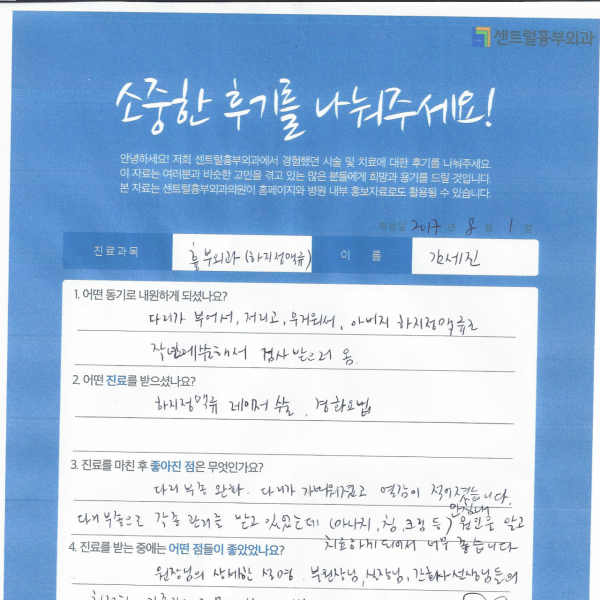 센트럴흉부외과
소중한 후기를 나눠주세요!
안녕하세요! 저희 센트럴흉부외과에서 경험했던 시술 및 치료에 대한 후기를 나눠주세요
이 자료는 여러분과 비슷한 고민을 겪고 있는 많은 분들에게 희망과 용기를 드릴 것입니다.
본 자료는 센트럴흉부외과의원이 홈페이지와 병원 내부 홍보자료로도 활용될 수 있습니다.
작성일 2017 년 8 월 1 일
진료과목 흉부외과 (하지정맥류) 이 름 김세진
1. 어떤 동기로 내원하게 되셨나요?
다리가 부어서, 저리고, 무거워서, 아버지 하지정맥류로
작년에 수술해서 검사 받으러 옴.
2. 어떤 진료를 받으셨나요?
하지정맥류 레이저 수술, 경화요법
3. 진료를 마친 후 좋아진 점은 무엇인가요?
다리 부종 완화. 다리가 가벼워졌고 열감이 적어졌습니다.
다리 부종으로 각종 관리를 받고 있었는데 (마사지, 침, 크림 등) 원인을 알고
치료하게 되어서 너무 좋습니다
4. 진료를 받는 중에는 어떤 점들이 좋았었나요?
원장님의 상세한 설명. 부원장님, 실장님, 간호사선생님들의